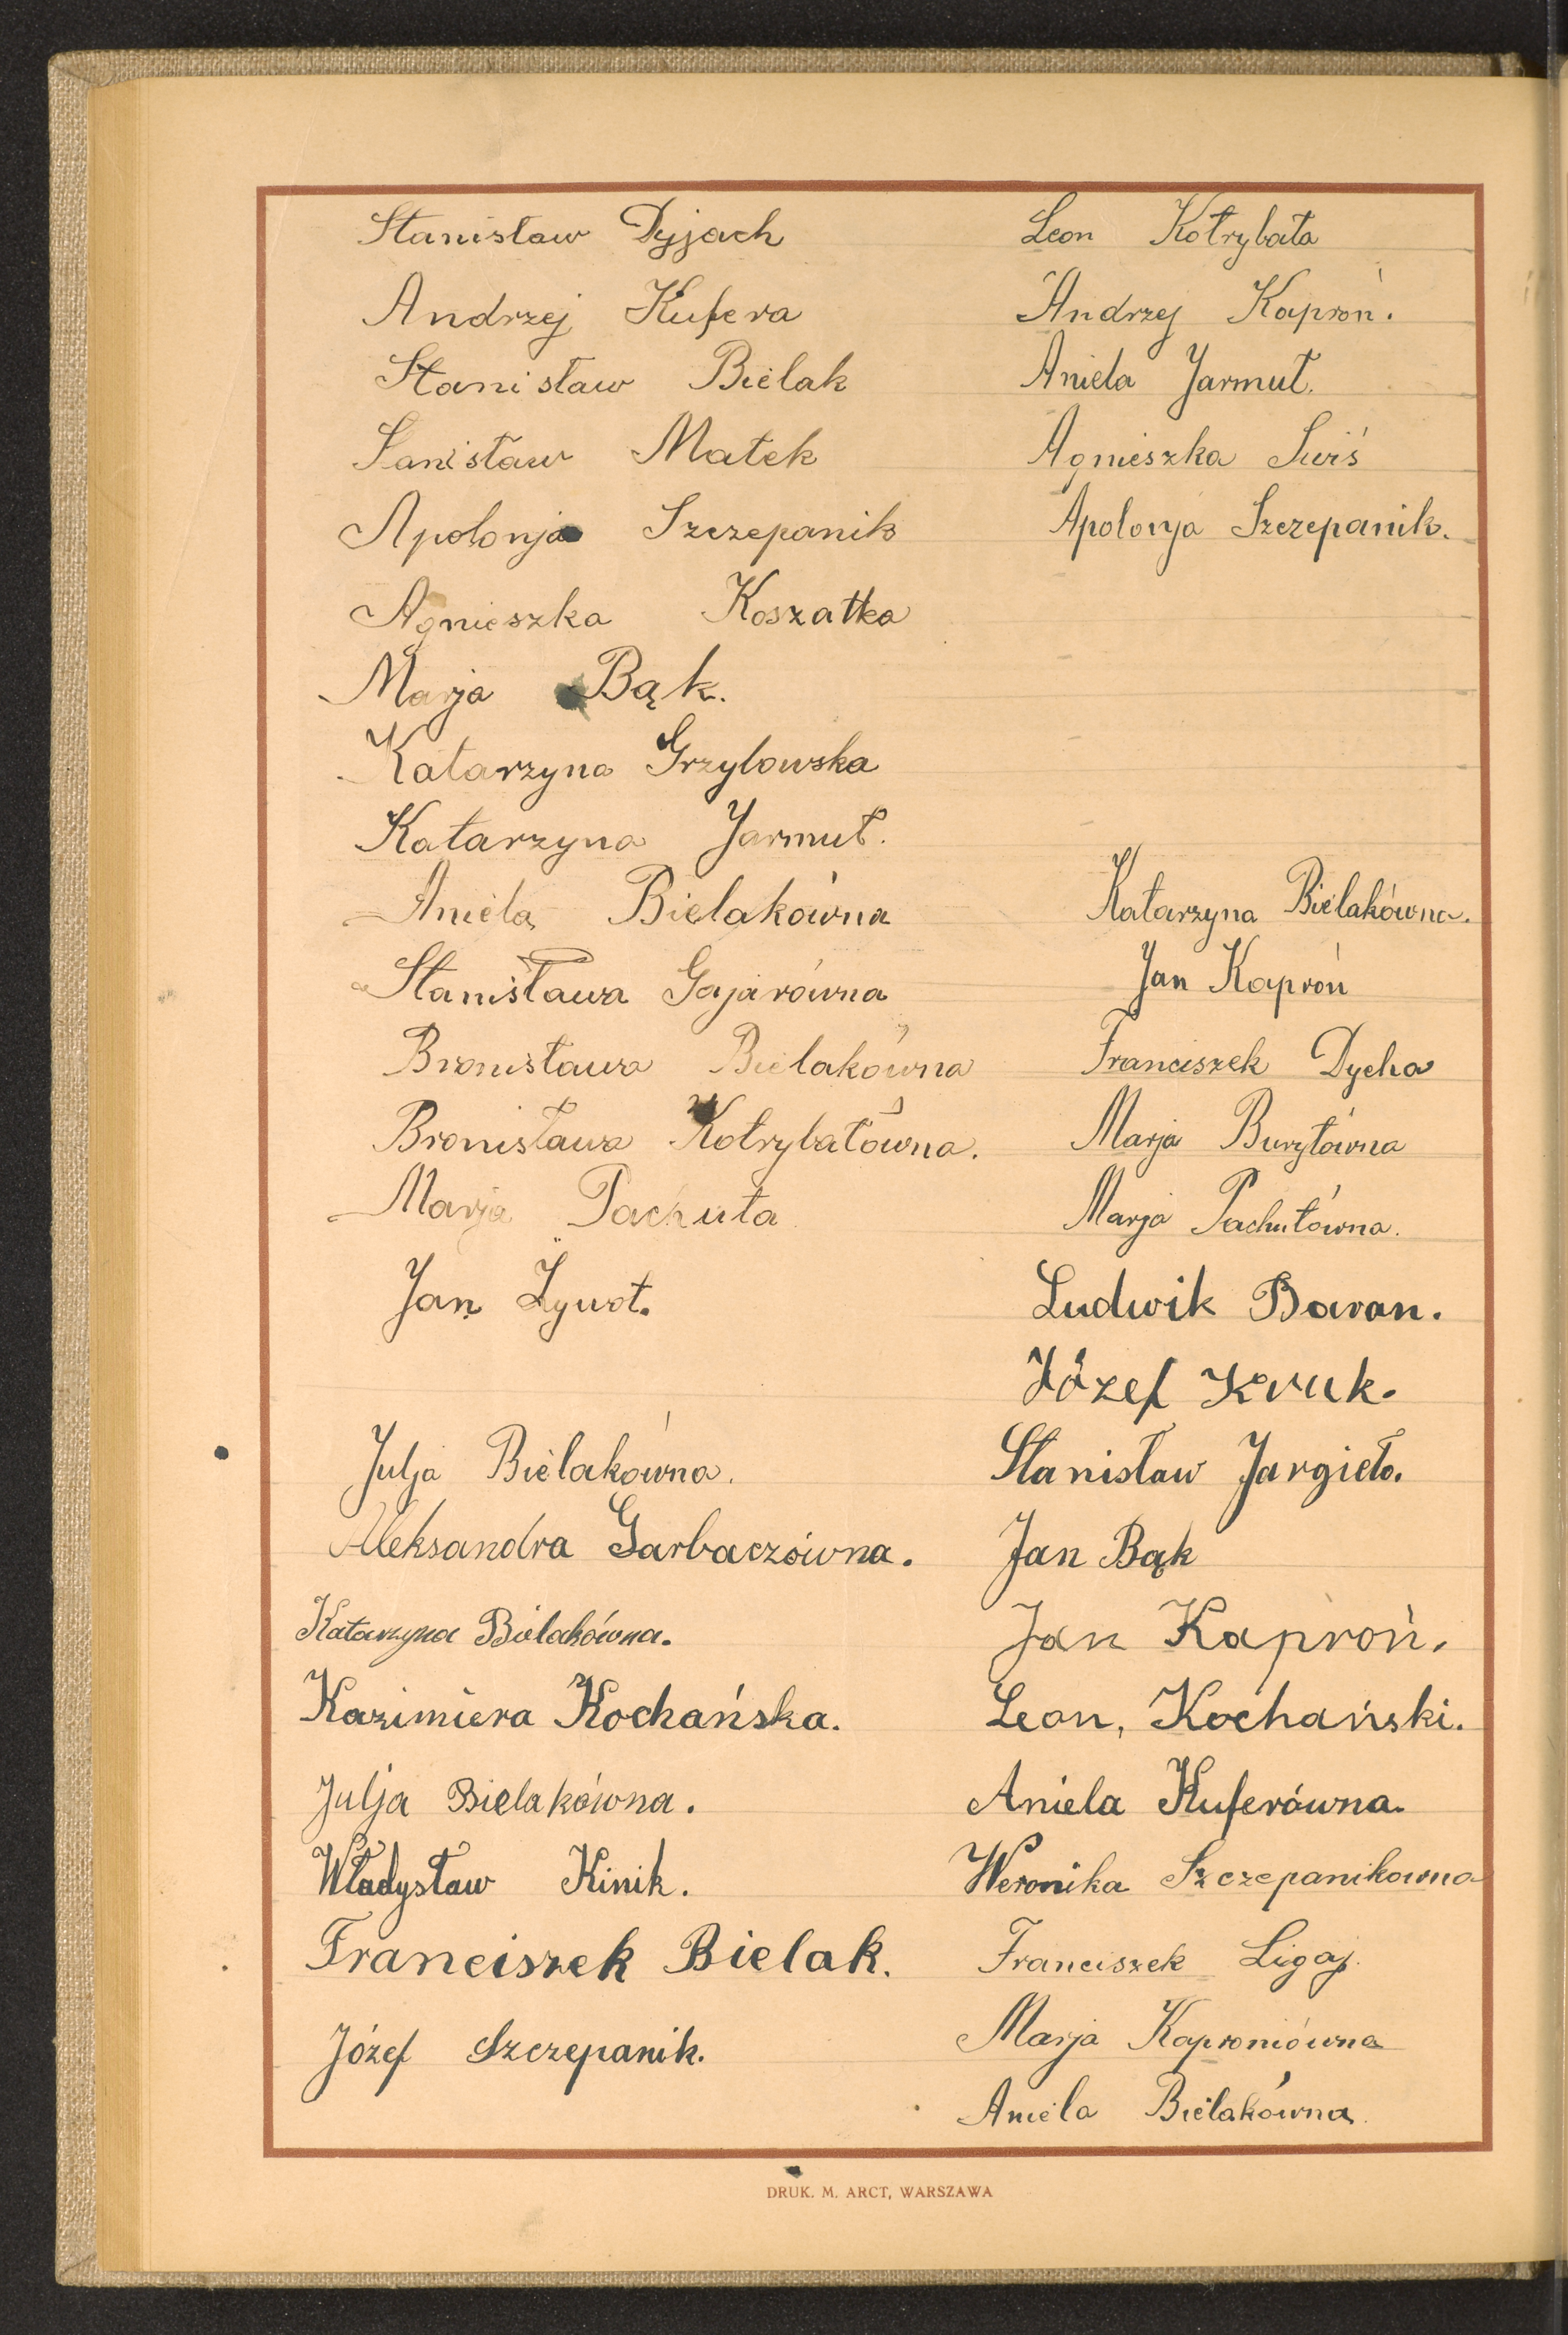 Stanisław Dyjach
Andrzej Kufera
Stanisław Bielak
Sanisław Małek
Apolonja Szczepanik
Agnieszka Koszałka
Marja Bąk.
Katarzyna Grzylowska
Katarzyna Jarmuł.
Aniela Bielakówna
Stanisława Gajarówna
Bronisława Bielakówna
Bronisława Kotrybałówna.
Marja Pachuta
Jan Żywot.
Julja Bielakówna.
Aleksandra Garbaczówna.
Katarzyna Bielakówna.
Kazimiera Kochańska.
Julja Bielakówna.
Władysław Kinik.
Franciszek Bielak.
Józef Szczepanik.
Leon Kotrybała
Andrzej Kaproń.
Aniela Jarmuł.
Agnieszka Siwiś
Apolonja Szczepanik.
Katarzyna Bielakówna.
Jan Kaproń
Franciszek Dycha
Marja Buryłówna
Marja Pachutówna.
Ludwik Baran.
Józef Kruk.
Stanisław Jargieło.
Jan Bąk
Jan Kaproń.
Leon, Kochański.
Aniela Kuferówna.
Weronika Szczepanikowna
Franciszek Ligaj.
Marja Kaproniówna
Aniela Bielakówna.
DRUK. M. ARCT, WARSZAWA